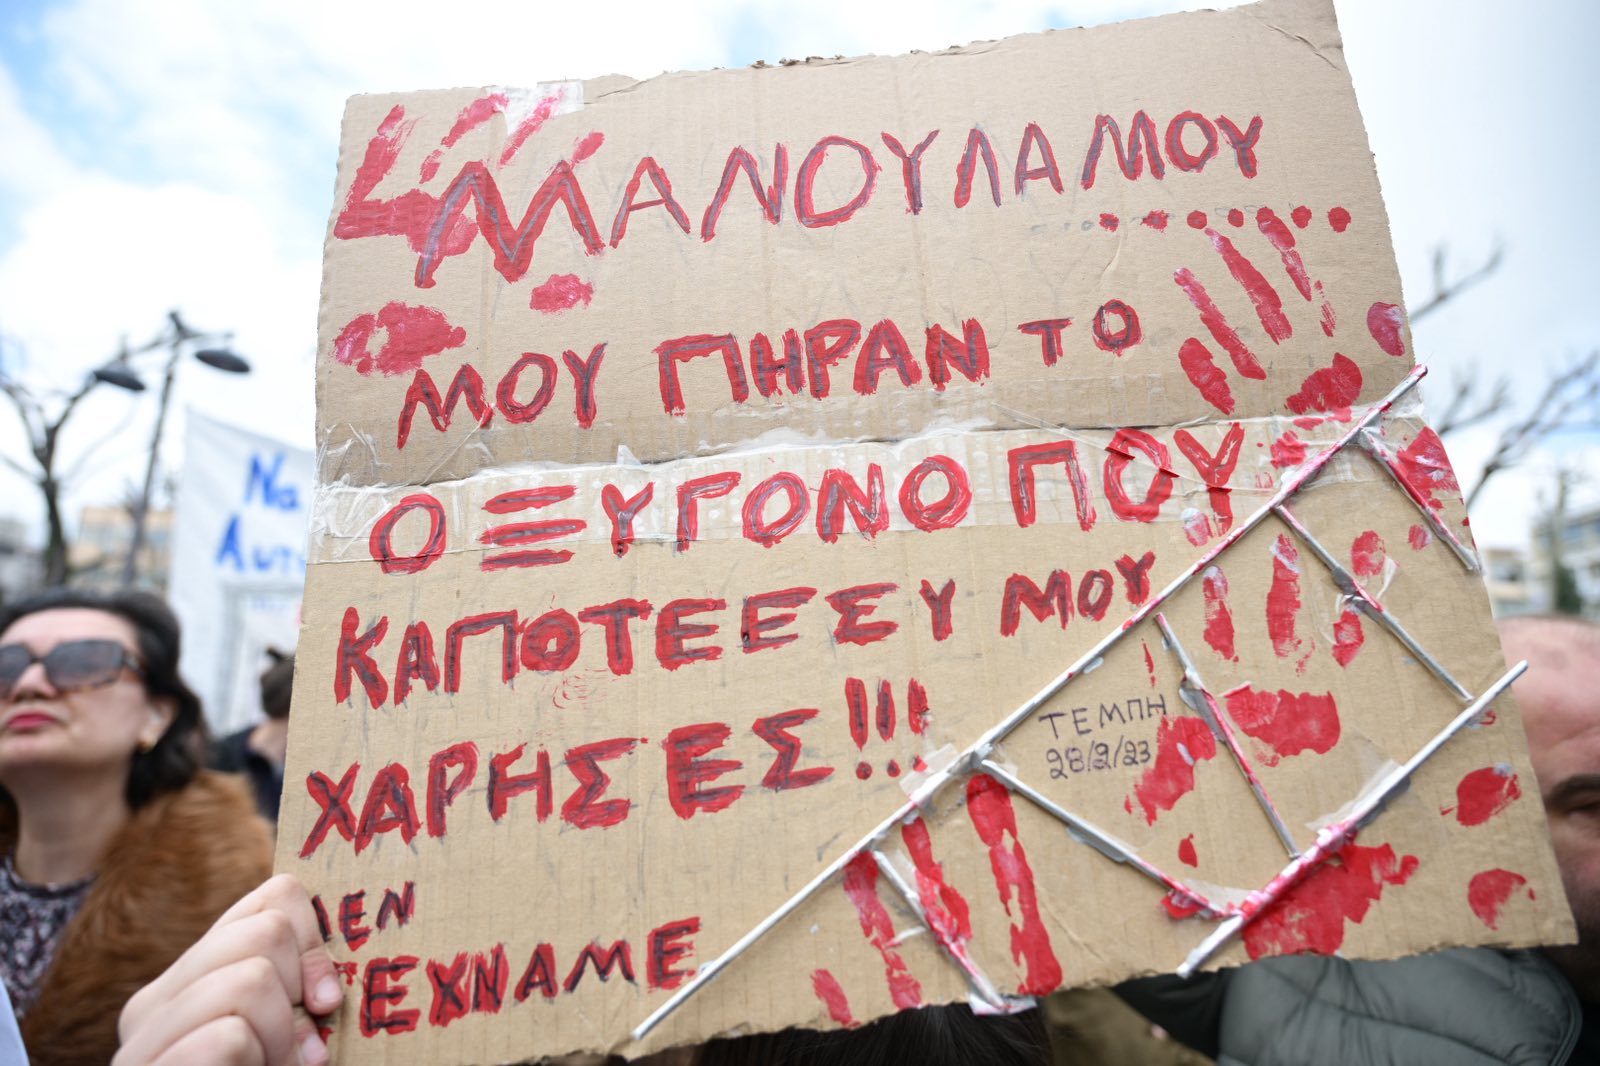 ΜΑΝΟΥΛΑ ΜΟΥ
.........
ΜΟΥ ΠΗΡΑΝ ΤΟ
ΟΞΥΓΟΝΟ ΠΟΥ
ΚΑΠΟΤΕ ΕΣΥ ΜΟΥ
ΧΑΡΗΣΕΣ!!!
ΤΕΜΠΗ
28/2/23
ΔΕΝ
ΞΕΧΝΑΜΕ
Να